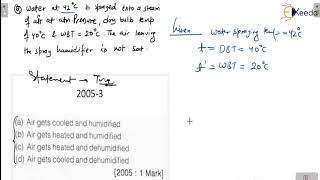 Q Water at 42°C is sprayed into a stream
of air at atm pressure, dry bulb temp
of 40°C & WBT = 20°C. The air leaving
the spray humidifier is not sat.
Statement → True
2005-3
(a) Air gets cooled and humidified
(b) Air gets heated and humidified
(c) Air gets heated and dehumidified
(d) Air gets cooled and dehumidified
[2005 : 1 Mark]
Given water spraying temp = 42°C
t = DBT = 40°C
t' = WBT = 20°C
+
Ekeeda